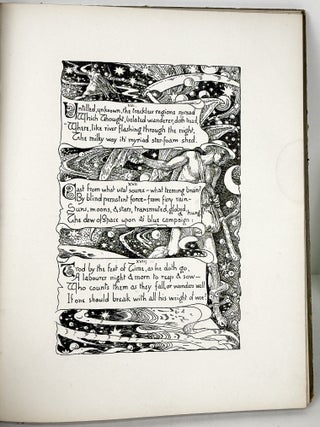 XVI
Untilled, unknown, the trackless regions spread
Which Thought, belated wanderer, doth tread
Where, like river flashing through the night,
The milky way its myriad star-foam shed.
XVII
But from what vital source — what teeming brain?
By blind persistent force — from fiery rain—
Suns, moons, & stars, transmuted, globed & hung
The dew of space upon its blue campaign:
XVIII
Trod by the feet of Time, as he doth go,
A labourer night & morn to reap & sow—
Who counts them as they fall, or wonders well
If one should break with all his weight of woe?